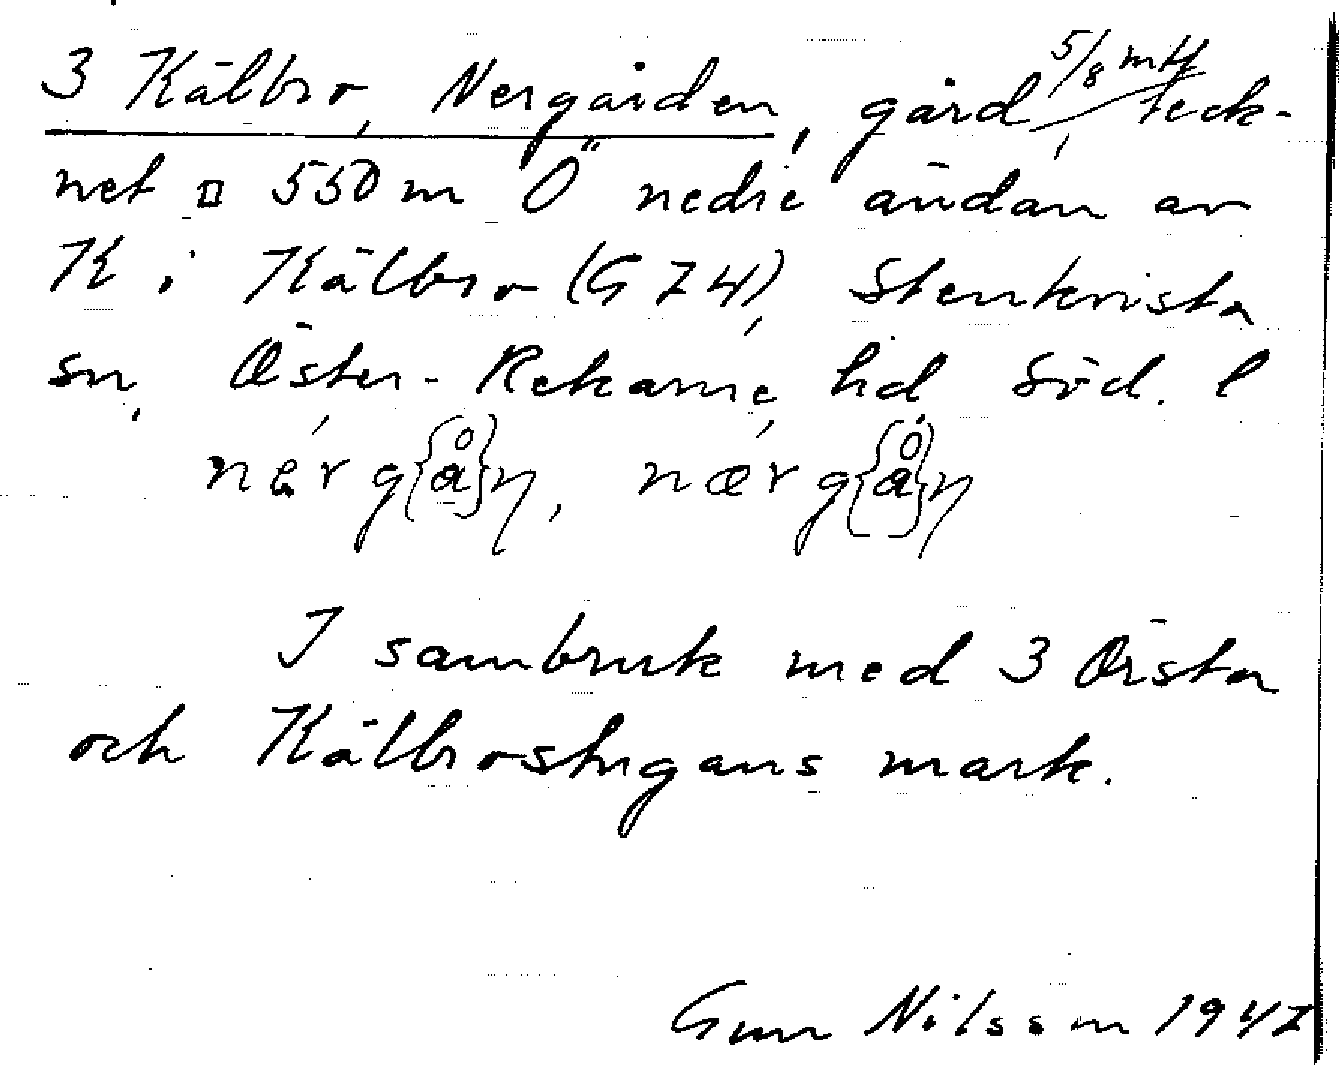 3 Kälbro, Nergården, gård, 5/8 mtl teck-
net □ 550 m Ö nedre ändan av
K i Kälbro (G 74), Stenkvista
sn, Öster-Rekarne hd Söd. l
nèr g{å}η, nær g{å}η
I sambruk med 3 Örsta
och Kälbrostugans mark.
Gun Nilsson 1947